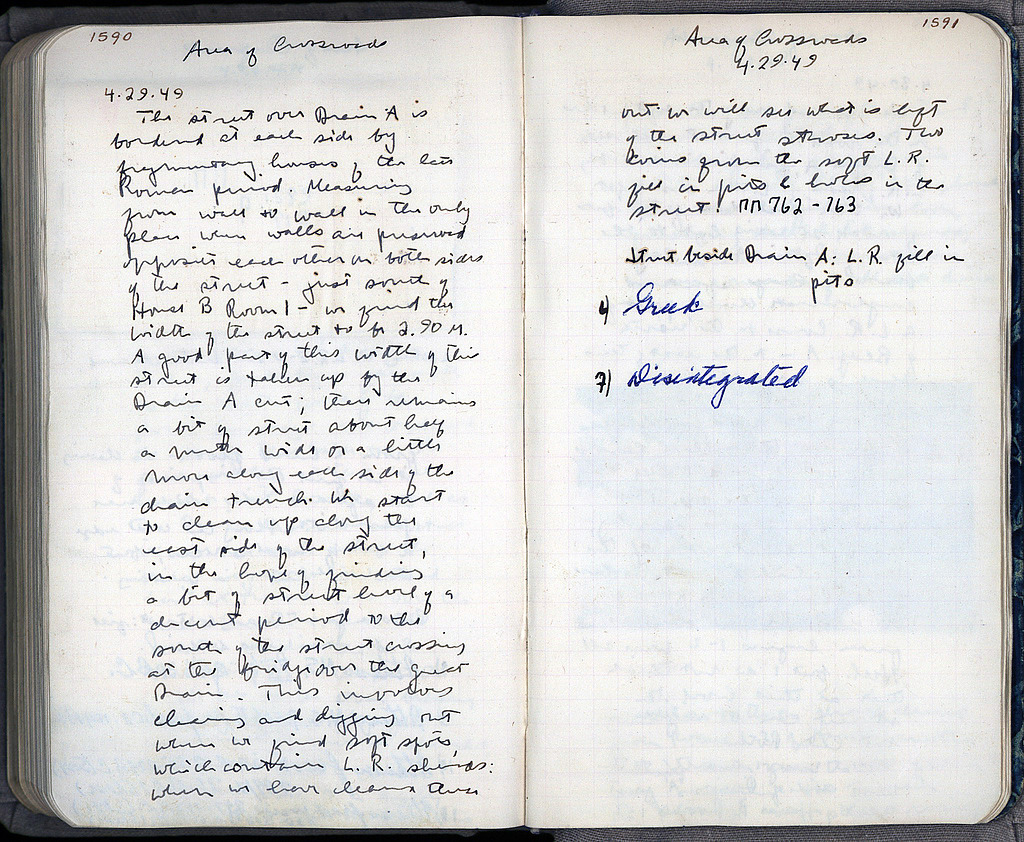 1590
Area of Crossroads
4.29.49
The street over Drain A is
bordered at each side by
fragmentary houses of the late
Roman period. Measuring
from wall to wall in the only
place where walls are preserved
opposite each other on both sides
of the street – just south of
House B Room 1 – we find the
width of the street to be 2.90 M.
A good part of this width of this
street is taken up by the
Drain A cut; there remains
a bit of street about half
a meter wide or a little
more along each side of the
drain trench. We start
to clean up along the
east side of the street,
in the hope of finding
a bit of street level of a
decent period to the
south of the street crossing
at the bridge over the great
Drain. This involves
cleaning and digging out
where we find soft spots,
which contain L. R. sherds:
when we have cleaned these
1591
Area of Crossroads
4.29.49
out we will see what is left
of the street stroses. Two
coins from the soft L. R.
fill in pits & holes in the
street: ΠΠ 762 - 763
Strut beside Drain A: L. R. fill in
pits
Greek
7) Disintegrated